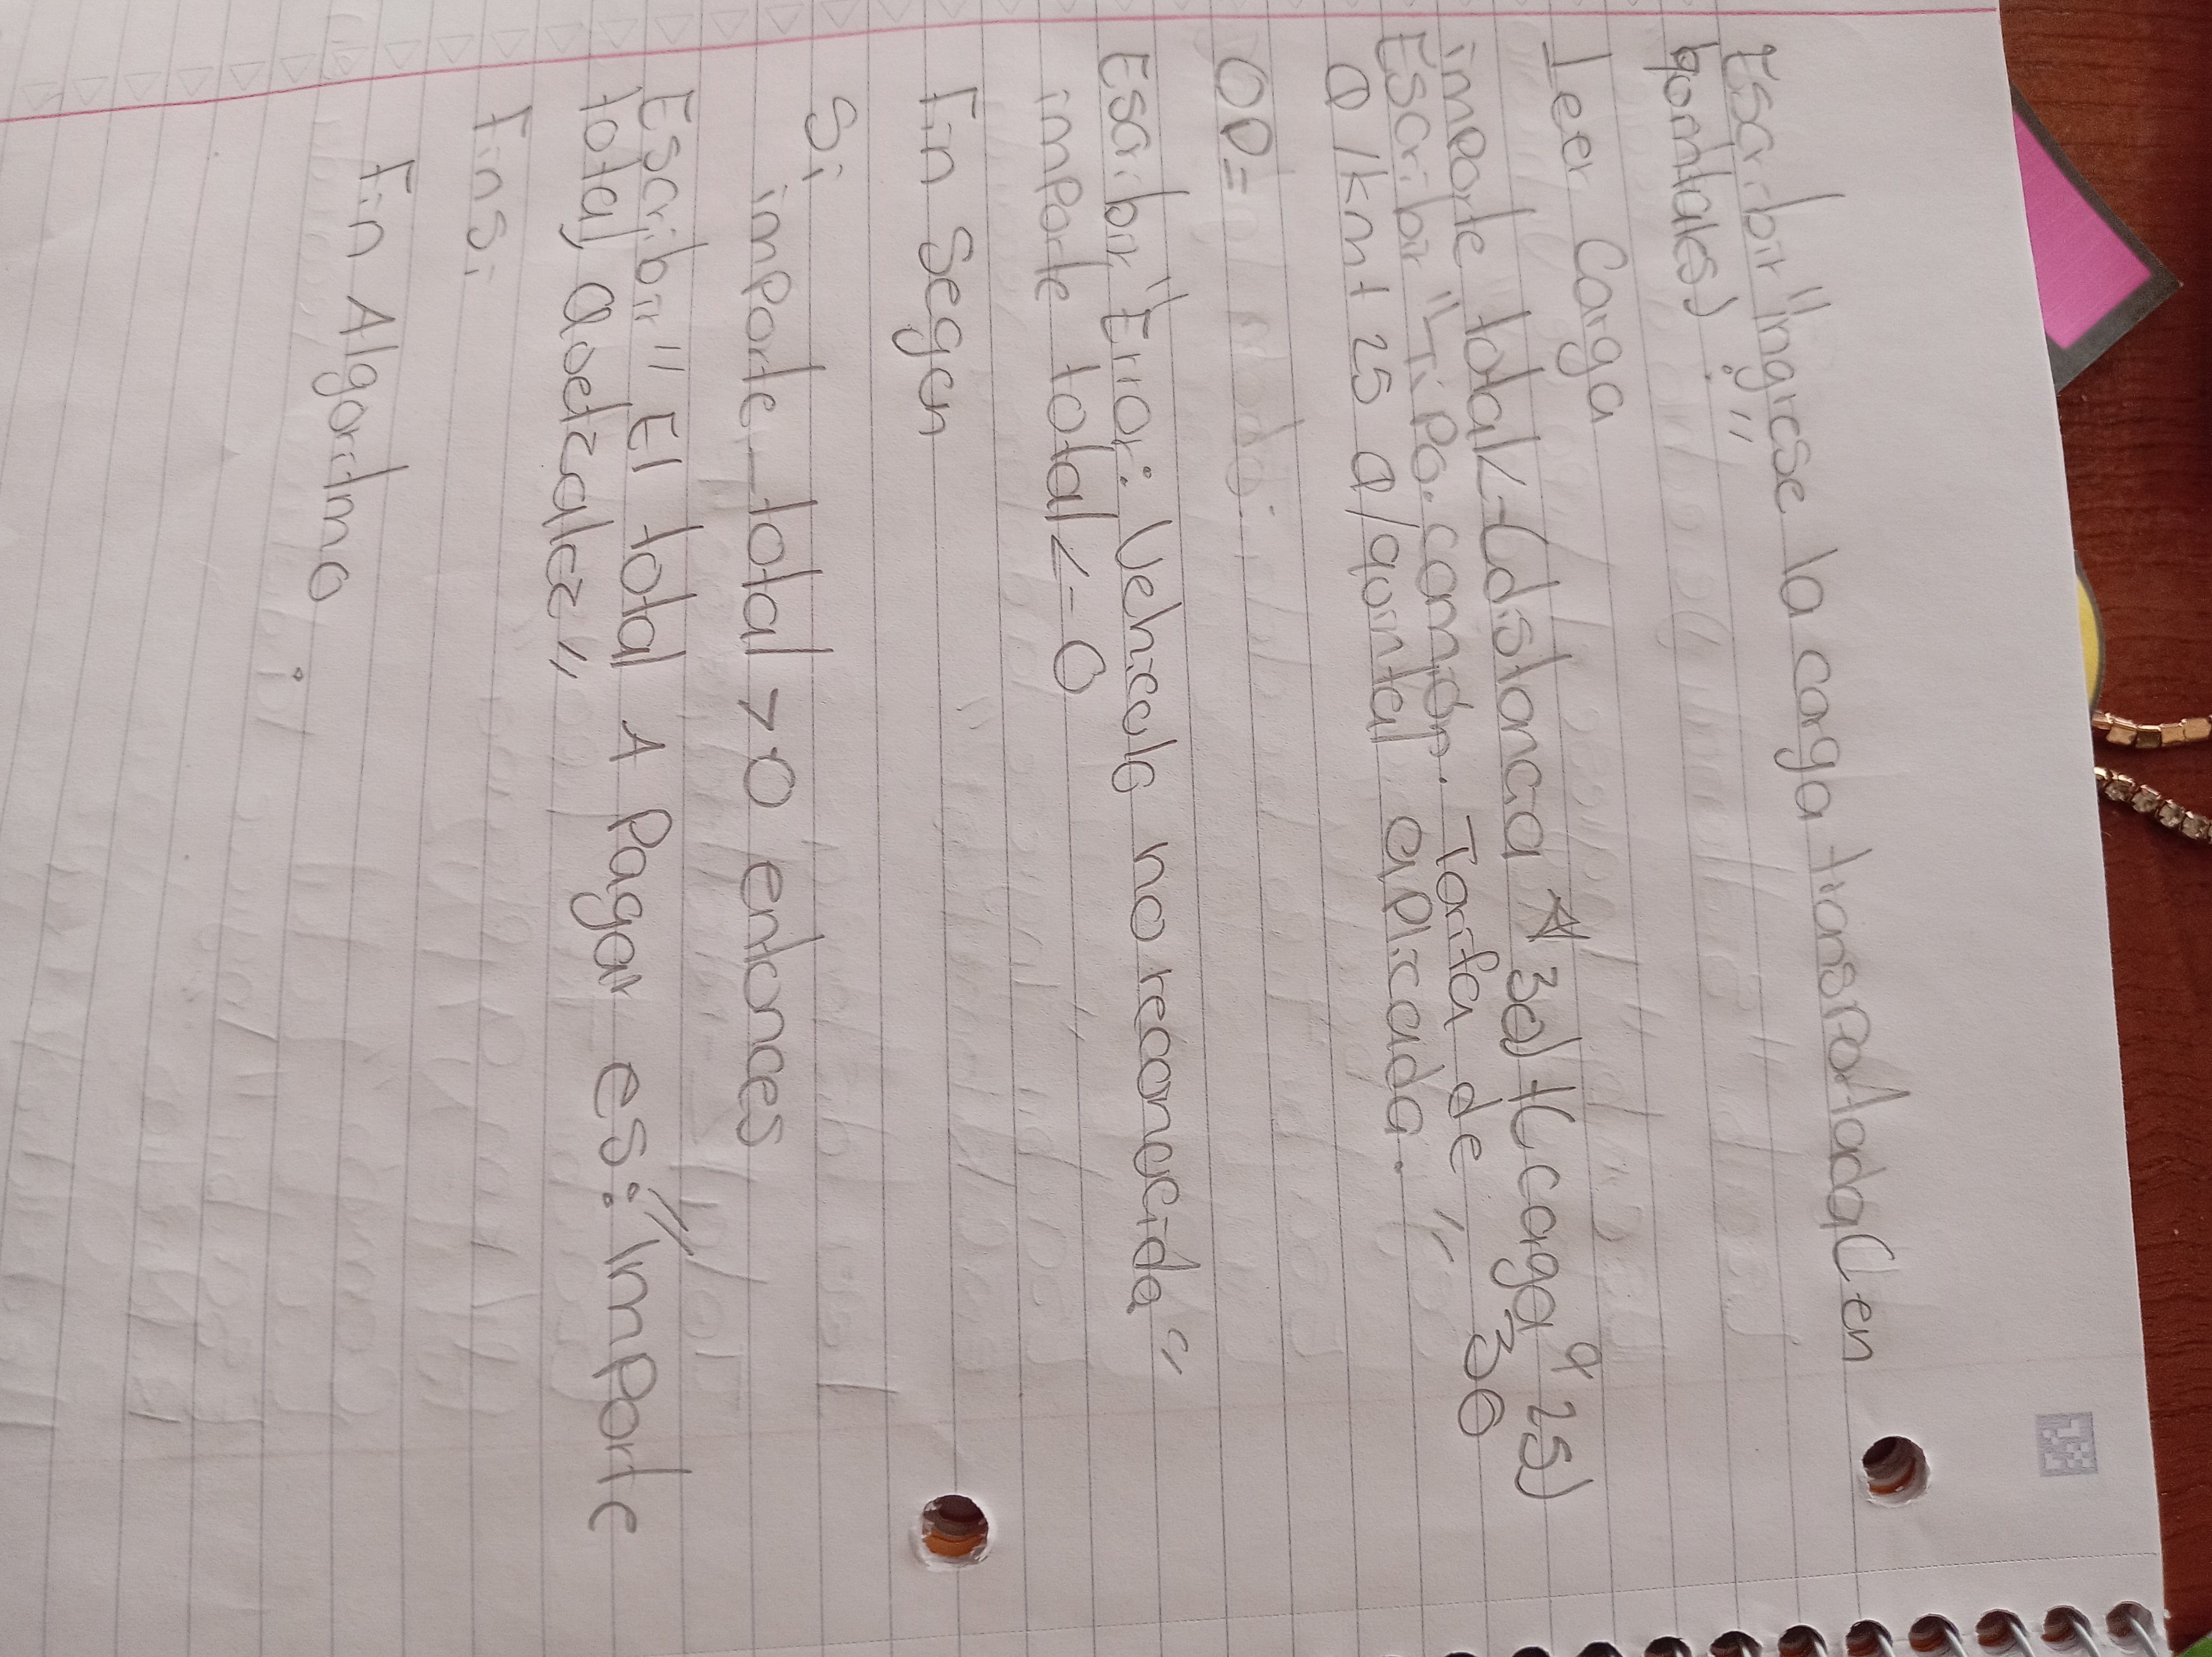 Escribir "ingrese la carga transportada(en
qointales) :"
Leer Carga
importe total<-(distancia * 30)+(carga * 25)
Escribir "Tipo.camión. Tarifa de 30
Q/km+ 25 Q/quintal aplicada."
OP=
Escribir "Error: Vehiculo no reconocida"
importe total<-0
Fin Segun
Si
importe_total >0 entonces
Escribir "El total A Pagar es:"importe
total,
Finsi
Fin Algoritmo